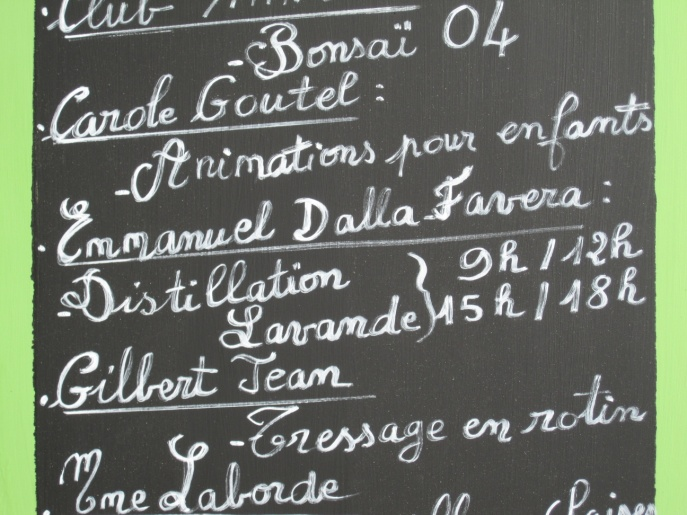 · Club
- Bonsaï 04
· Carole Goutel :
- Animations pour enfants
· Emmanuel Dalla Favera :
- Distillation } 9h / 12h
Lavande } 15h / 18h
· Gilbert Jean
- Tressage en rotin
· Mme Laborde